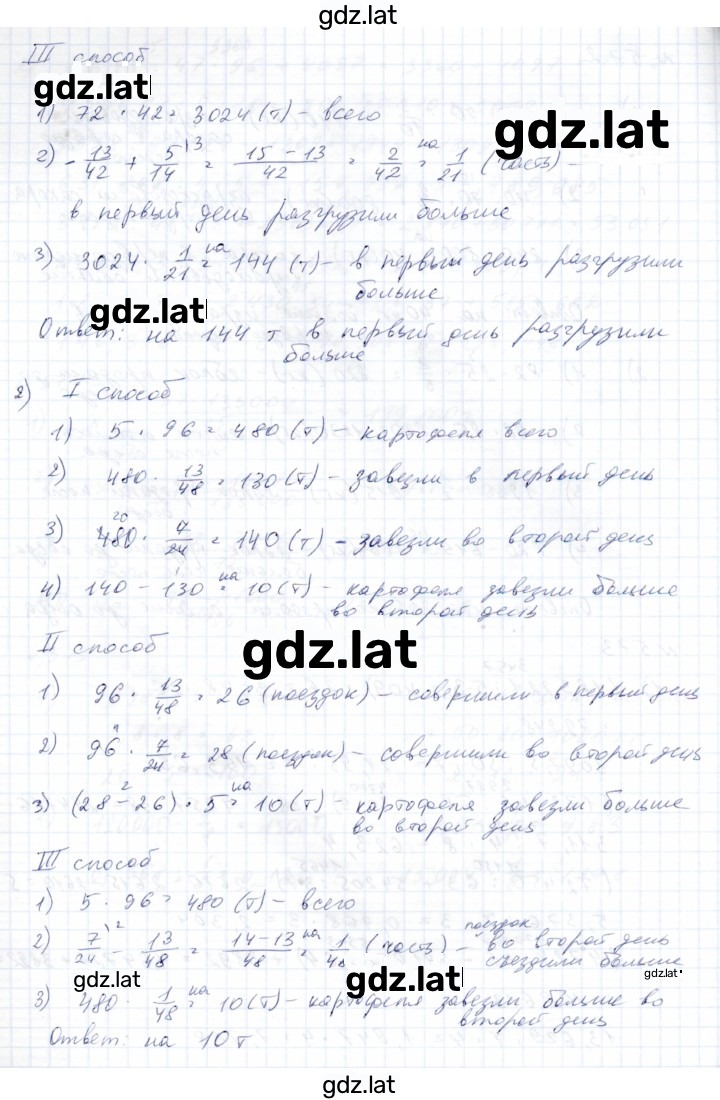 gdz.lat
III способ
gdz.lat
1) 72 · 42 = 3024 (т) - всего
gdz.lat
2) - 13/42 + 5/14 \3 = 15 - 13/42 = 2/42 = на 1/21 (часть) -
в первый день разгрузили больше
3) 3024 · 1/21 = на 144 (т) - в первый день разгрузили
больше
gdz.lat
Ответ: на 144 т в первый день разгрузили
больше
2) I способ
1) 5 · 96 = 480 (т) - картофеля всего
2) 480 · 13/48 = 130 (т) - завезли в первый день
3) 480 20 · 7/24 = 140 (т) - завезли во второй день
4) 140 - 130 = на 10 (т) - картофеля завезли больше
во второй день
II способ
gdz.lat
1) 96 · 13/48 = 26 (поездок) - совершили в первый день
2) 96 · 7/24 = 28 (поездок) - совершили во второй день
3) (28 - 26) 2 · 5 = на 10 (т) - картофеля завезли больше
во второй день
III способ
1) 5 · 96 = 480 (т) - всего
2) 7/24 \2 - 13/48 = 14-13/48 = на 1/48 (часть) - поездок во второй день
съездили больше
gdz.lat
gdz.lat
gdz.lat
3) 480 · 1/48 = на 10 (т) - картофеля завезли больше во
второй день
Ответ: на 10 т
gdz.lat